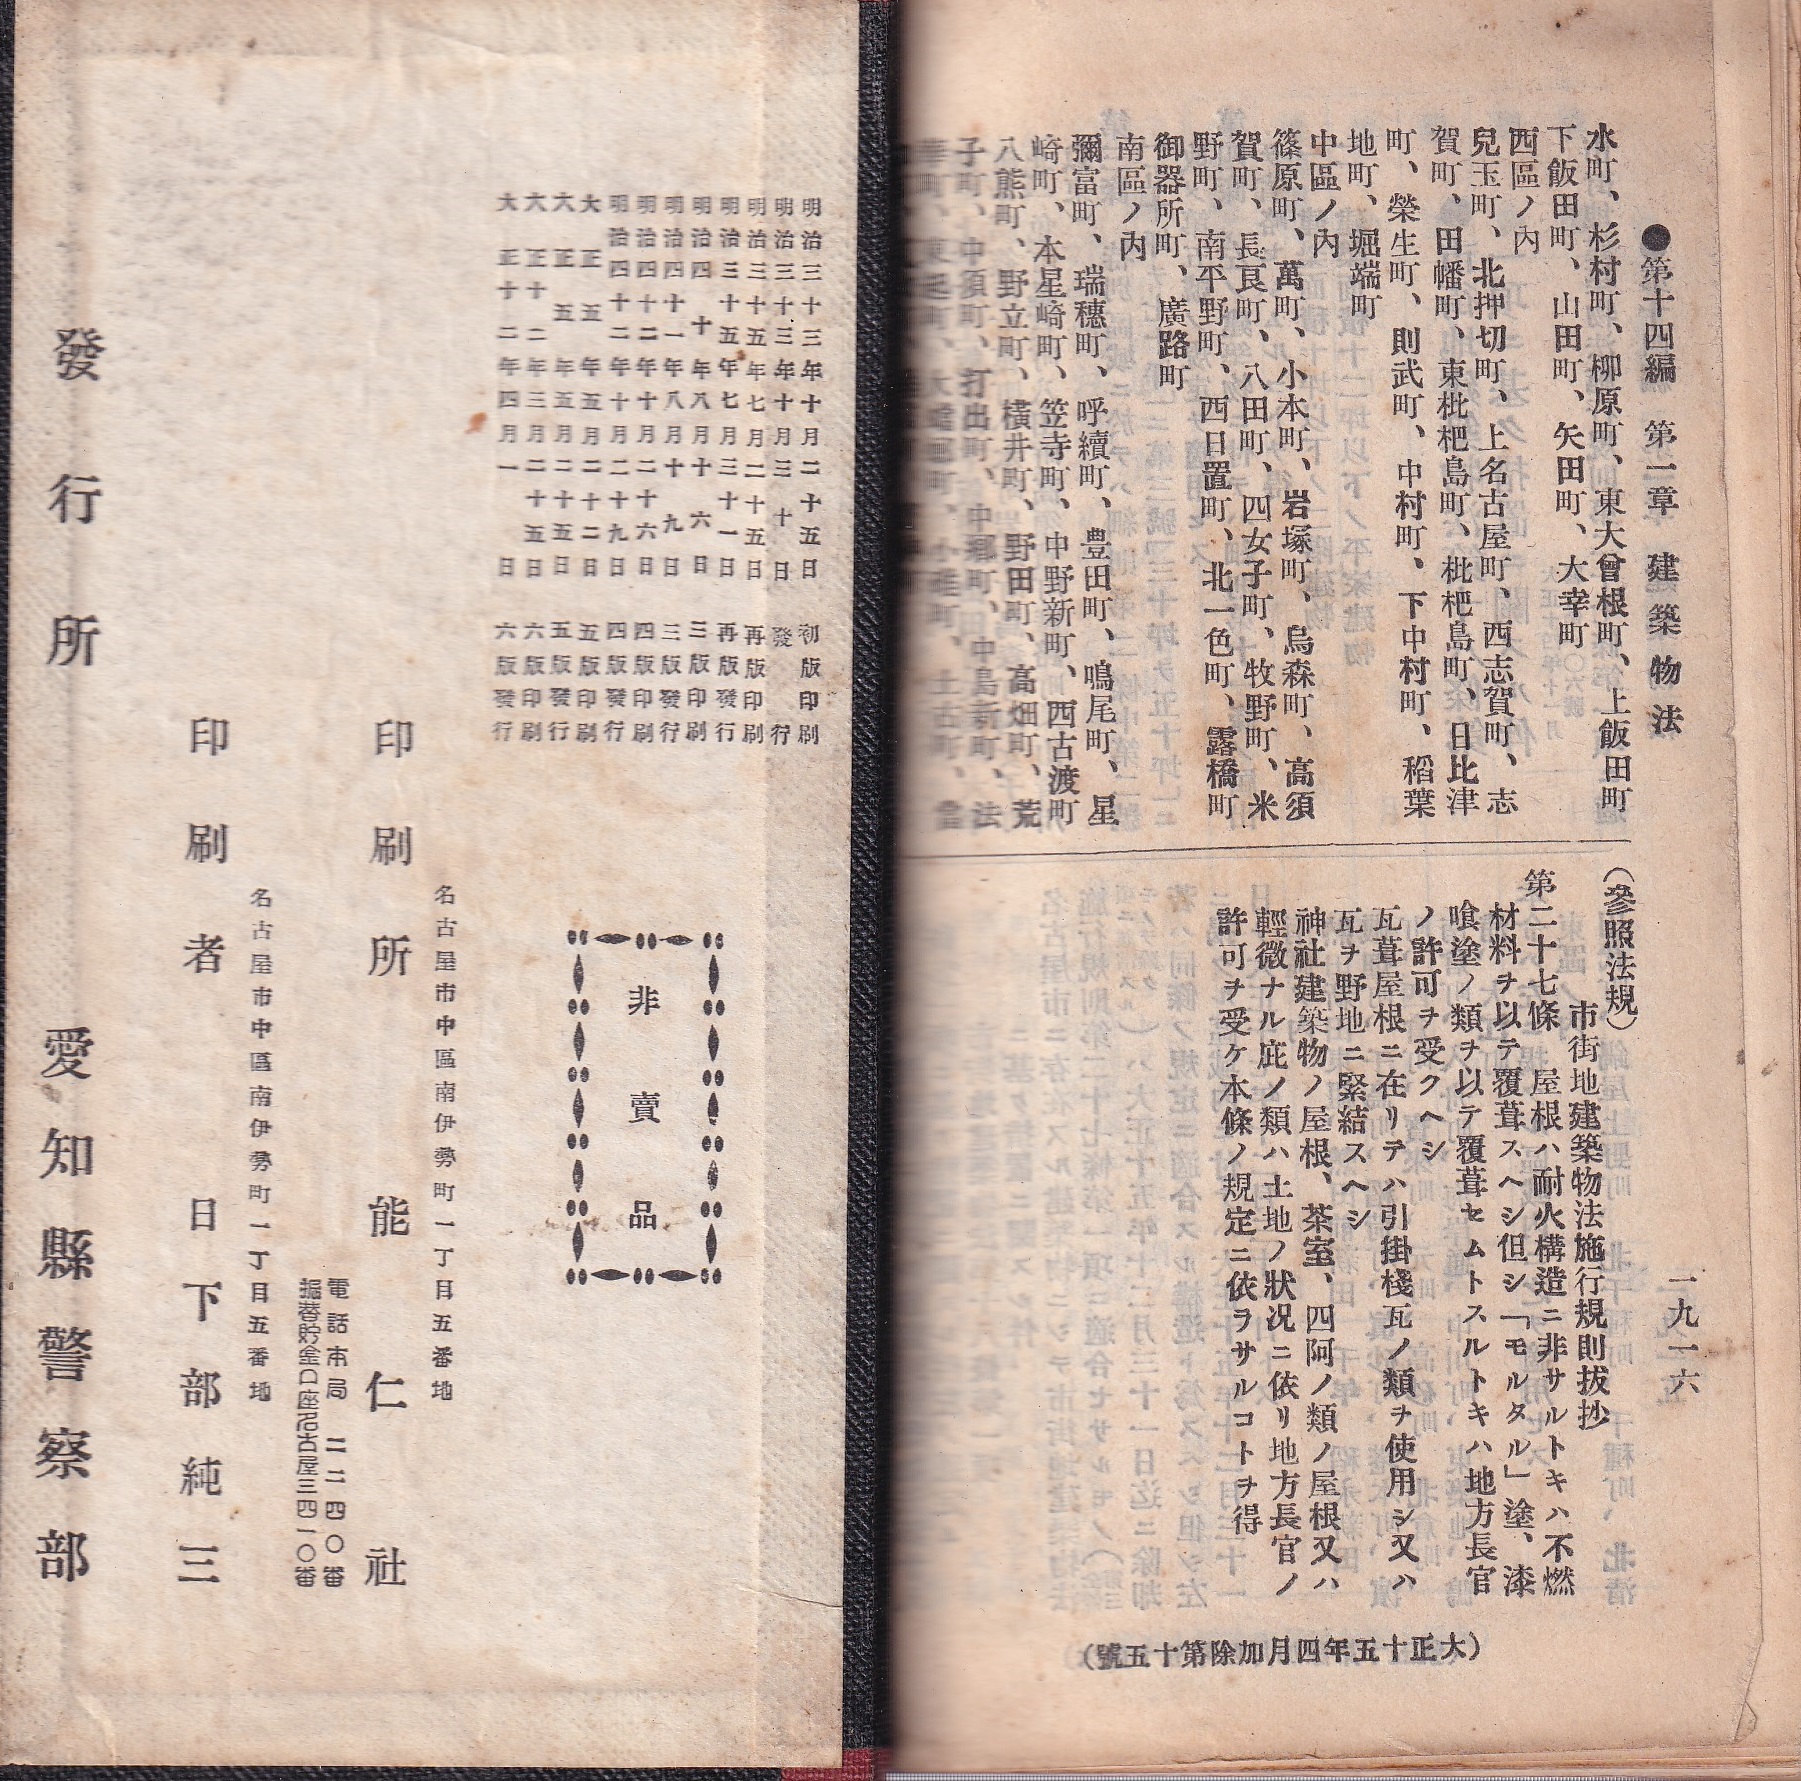 ●第十四編　第一章　建築物法
一九一六
水町、杉村町、柳原町、東大曾根町、上飯田町
下飯田町、山田町、矢田町、大幸町
西區ノ內
兒玉町、北押切町、上名古屋町、西志賀町、志
賀町、田幡町、東枇杷島町、枇杷島町、日比津
町、榮生町、則武町、中村町、下中村町、稻葉
地町、堀端町
中區ノ內
篠原町、萬町、小本町、岩塚町、烏森町、高須
賀町、長良町、八田町、四女子町、牧野町、米
野町、南平野町、西日置町、北一色町、露橋町
御器所町、廣路町
南區ノ內
彌富町、瑞穗町、呼續町、豊田町、鳴尾町、星
崎町、本星崎町、笠寺町、中野新町、西古渡町
八熊町、野立町、橫井町、野田町、高畑町、荒
子町、中須町、打出町、中鄕町、中島新町、法
（參照法規）
市街地建築物法施行規則抜抄
第二十七條　屋根ハ耐火構造ニ非サルトキハ不燃
材料ヲ以テ覆葺スヘシ但シ「モルタル」塗、漆
喰塗ノ類ヲ以テ覆葺セムトスルトキハ地方長官
ノ許可ヲ受クヘシ
瓦葺屋根ニ在リテハ引掛棧瓦ノ類ヲ使用シ又ハ
瓦ヲ野地ニ緊結スヘシ
神社建築物ノ屋根、茶室、四阿ノ類ノ屋根又ハ
輕微ナル庇ノ類ハ土地ノ狀況ニ依リ地方長官ノ
許可ヲ受ケ本條ノ規定ニ依ラサルコトヲ得
（大正十五年四月加除第十五號）
明治三十三年十月二十五日　初版印刷
明治三十三年十月三十日　發行
明治三十五年七月二十五日　再版印刷
明治三十五年七月三十一日　再版發行
明治四十年八月十六日　三版印刷
明治四十一年八月十九日　三版發行
明治四十二年十月二十六日　四版印刷
明治四十二年十月二十九日　四版發行
大正五年五月二十二日　五版印刷
大正五年五月二十五日　五版發行
大正十二年三月二十五日　六版印刷
大正十二年四月一日　六版發行
非賣品
名古屋市中區南伊勢町一丁目五番地
印刷所　能仁社
電話本局二二四〇番
振替貯金口座名古屋三四一〇番
名古屋市中區南伊勢町一丁目五番地
印刷者　日下部純三
發行所　愛知縣警察部